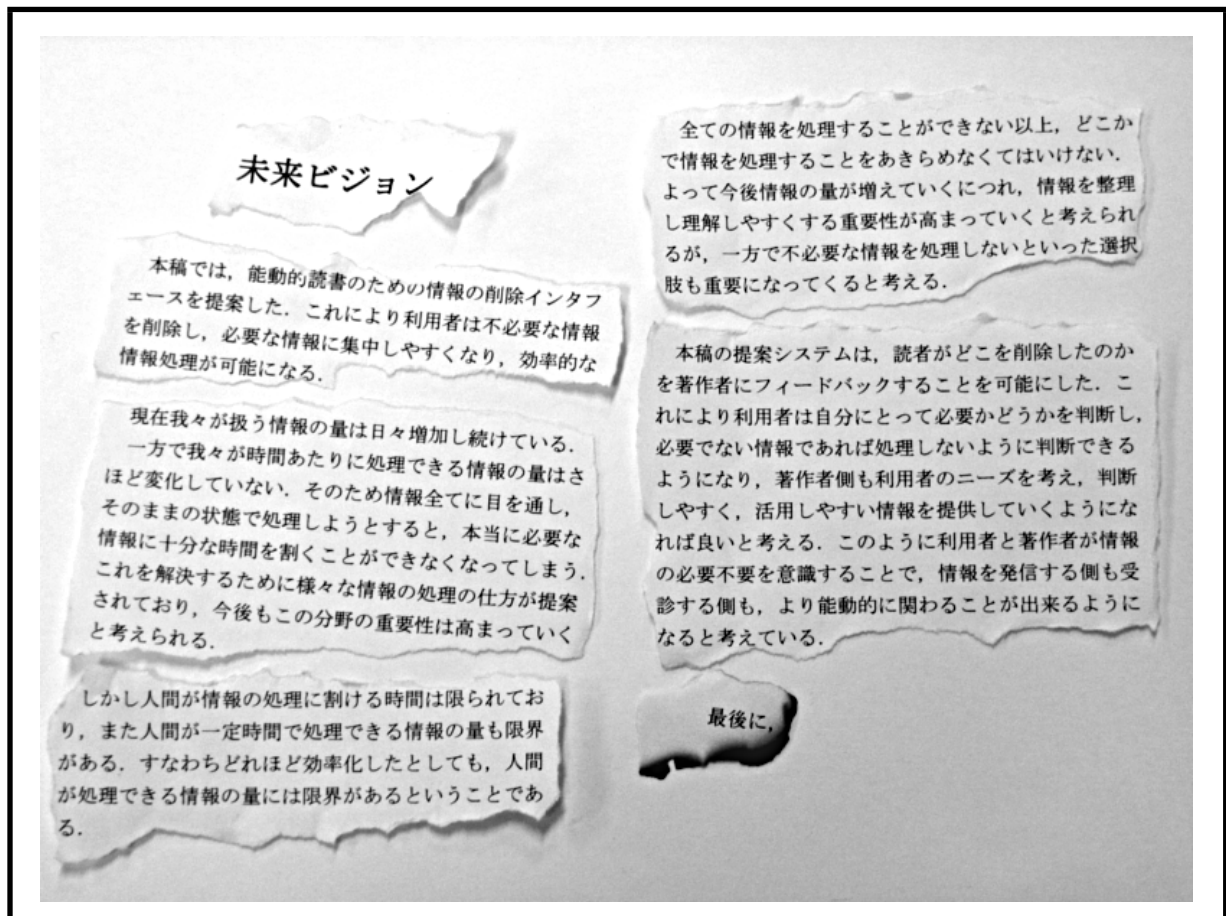 未来ビジョン
本稿では，能動的読書のための情報の削除インタフ
ェースを提案した．これにより利用者は不必要な情報
を削除し，必要な情報に集中しやすくなり，効率的な
情報処理が可能になる．
現在我々が扱う情報の量は日々増加し続けている．
一方で我々が時間あたりに処理できる情報の量はさ
ほど変化していない．そのため情報全てに目を通し，
そのままの状態で処理しようとすると，本当に必要な
情報に十分な時間を割くことができなくなってしまう．
これを解決するために様々な情報の処理の仕方が提案
されており，今後もこの分野の重要性は高まっていく
と考えられる．
しかし人間が情報の処理に割ける時間は限られてお
り，また人間が一定時間で処理できる情報の量も限界
がある．すなわちどれほど効率化したとしても，人間
が処理できる情報の量には限界があるということであ
る．
全ての情報を処理することができない以上，どこか
で情報を処理することをあきらめなくてはいけない．
よって今後情報の量が増えていくにつれ，情報を整理
し理解しやすくする重要性が高まっていくと考えられ
るが，一方で不必要な情報を処理しないといった選択
肢も重要になってくると考える．
本稿の提案システムは，読者がどこを削除したのか
を著作者にフィードバックすることを可能にした．こ
れにより利用者は自分にとって必要かどうかを判断し，
必要でない情報であれば処理しないように判断できる
ようになり，著作者側も利用者のニーズを考え，判断
しやすく，活用しやすい情報を提供していくようにな
れば良いと考える．このように利用者と著作者が情報
の必要不要を意識することで，情報を発信する側も受
診する側も，より能動的に関わることが出来るように
なると考えている．
最後に，